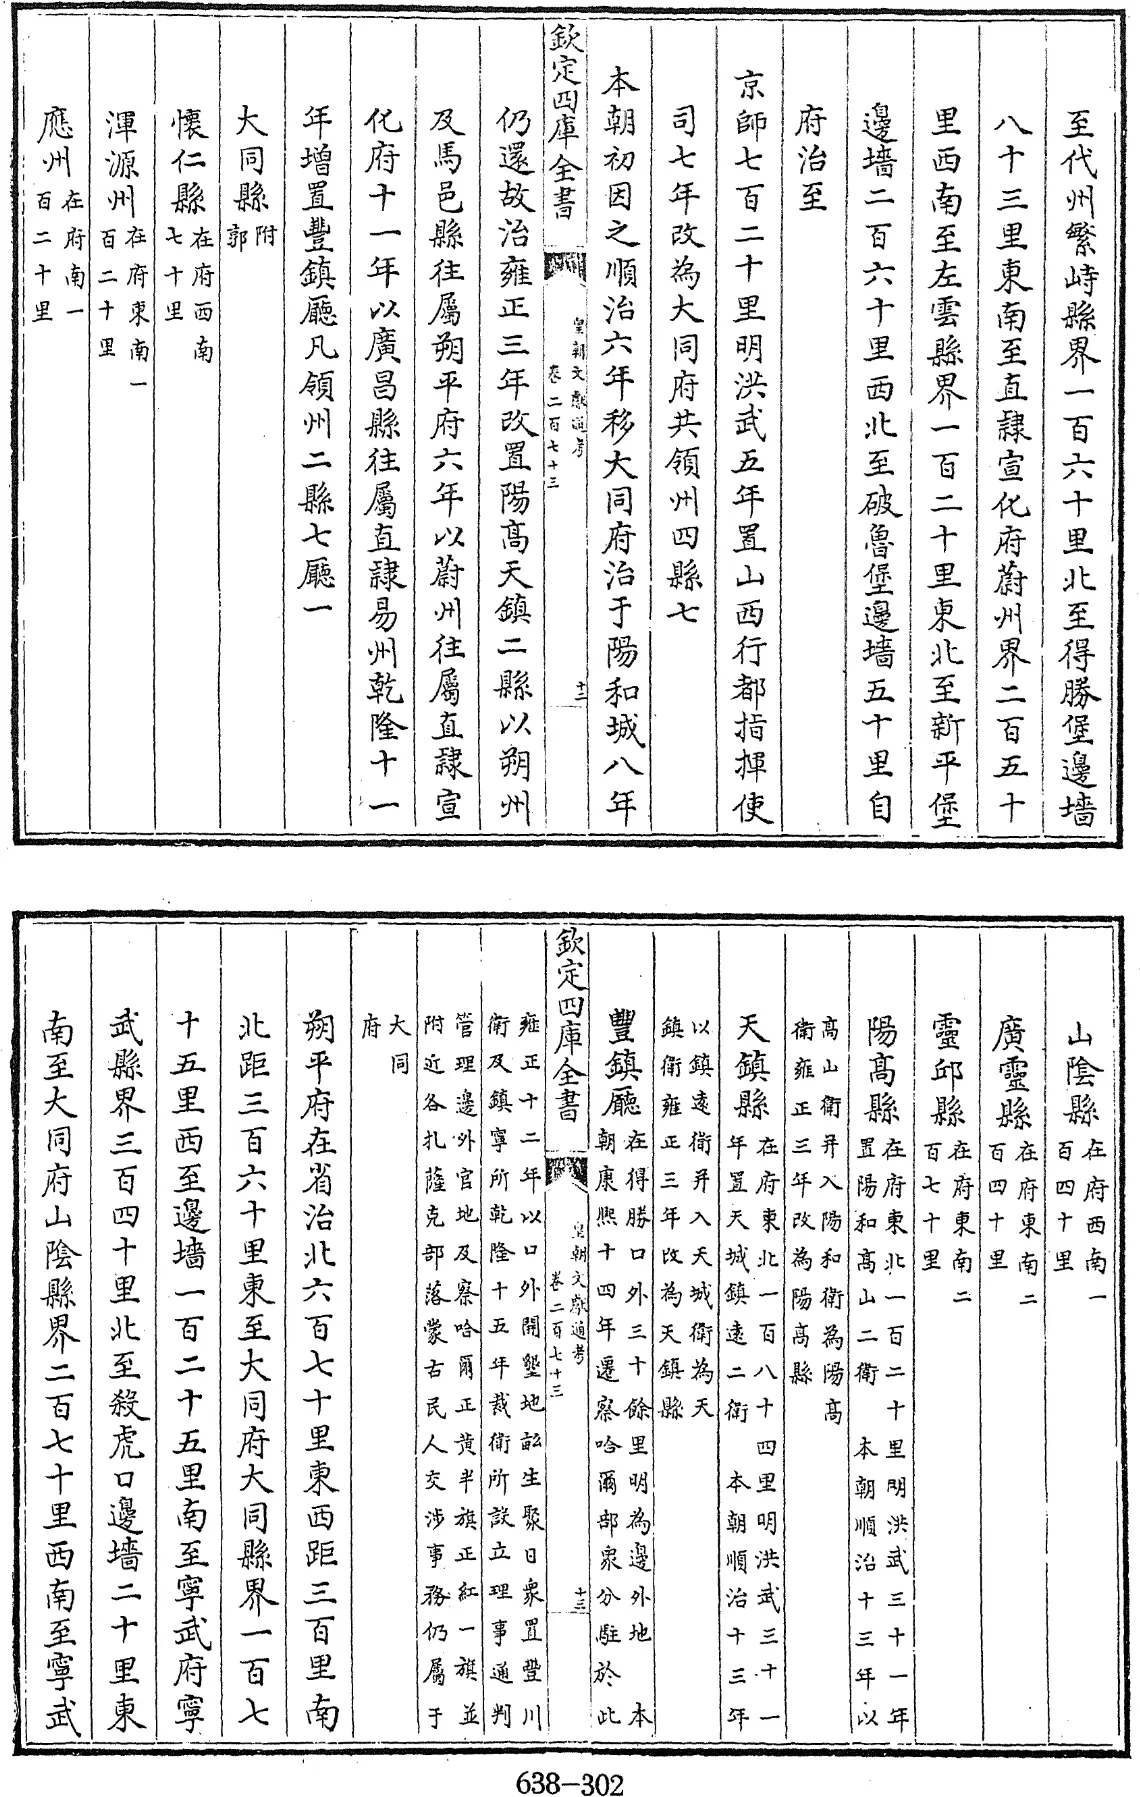 至代州繁峙縣界一百六十里北至得勝堡邊墻
八十三里東南至直隷宣化府蔚州界二百五十
里西南至左雲縣界一百二十里東北至新平堡
邊墻二百六十里西北至破魯堡邊墻五十里自
府治至
京師七百二十里明洪武五年置山西行都指揮使
司七年改為大同府共領州四縣七
本朝初因之順治六年移大同府治于陽和城八年
欽定四庫全書
皇朝文獻通考
卷二百七十三
十三
仍還故治雍正三年改置陽高天鎮二縣以朔州
及馬邑縣往屬朔平府六年以蔚州往屬直隷宣
化府十一年以廣昌縣往屬直隷易州乾隆十一
年增置豐鎮廳凡領州二縣七廳一
大同縣附
郭
懷仁縣在府西南
七十里
渾源州在府東南一
百二十里
應州在府南一
百二十里
山陰縣在府西南一
百四十里
廣靈縣在府東南二
百四十里
靈邱縣在府東南二
百七十里
陽高縣在府東北一百二十里明洪武三十一年
置陽和高山二衛 本朝順治十三年以
高山衛并入陽和衛為陽高
衛雍正三年改為陽高縣
天鎮縣在府東北一百八十四里明洪武三十一
年置天城鎮遠二衛 本朝順治十三年
以鎮遠衛并入天城衛為天
鎮衛雍正三年改為天鎮縣
豐鎮廳在得勝口外三十餘里明為邊外地 本
朝康熙十四年遷察哈爾部衆分駐於此
欽定四庫全書
皇朝文獻通考
卷二百七十三
十三
雍正十二年以口外開墾地畝生聚日衆置豐川
衛及鎮寧所乾隆十五年裁衛所設立理事通判
管理邊外官地及察哈爾正黄半旗正紅一旗並
附近各扎薩克部落蒙古民人交涉事務仍屬于
大同
府
朔平府在省治北六百七十里東西距三百里南
北距三百六十里東至大同府大同縣界一百七
十五里西至邊墻一百二十五里南至寧武府寧
武縣界三百四十里北至殺虎口邊墻二十里東
南至大同府山陰縣界二百七十里西南至寧武
638-302